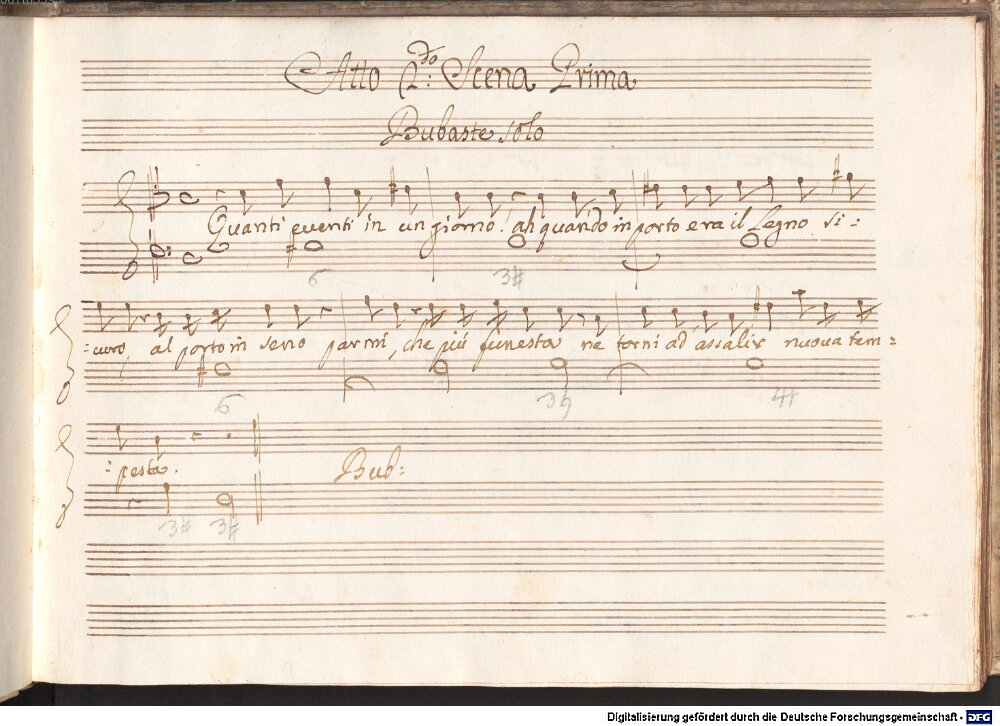 Atto 2.do Scena Prima
Bubaste solo
Quanti eventi in un giorno. ah quando in porto era il Legno si:
:curo, al porto in seno parmi, che più funesta ne torni ad assalir nuova tem=
6 3#
6 3♮ 4#
:pesta. Bub:
3# 3#
Digitalisierung gefördert durch die Deutsche Forschungsgemeinschaft - DFG